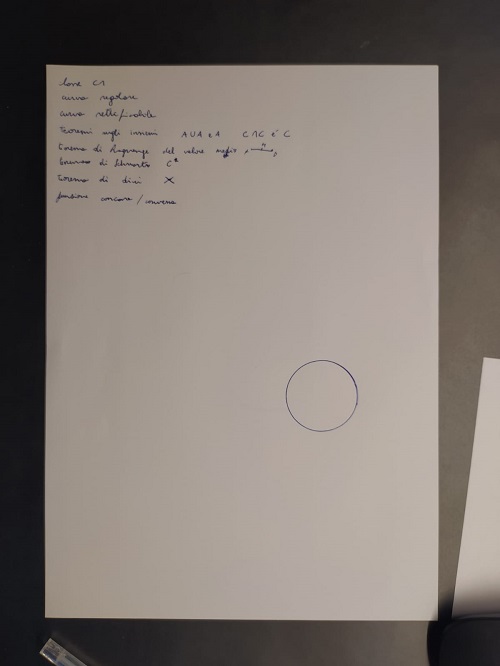 curva regolare
curva rettificabile
Teoremi sugli insiemi A U A è A C ∩ C è C
teorema di Lagrange del valore medio
teorema di C²
teorema di dini X
funzione concava / convessa